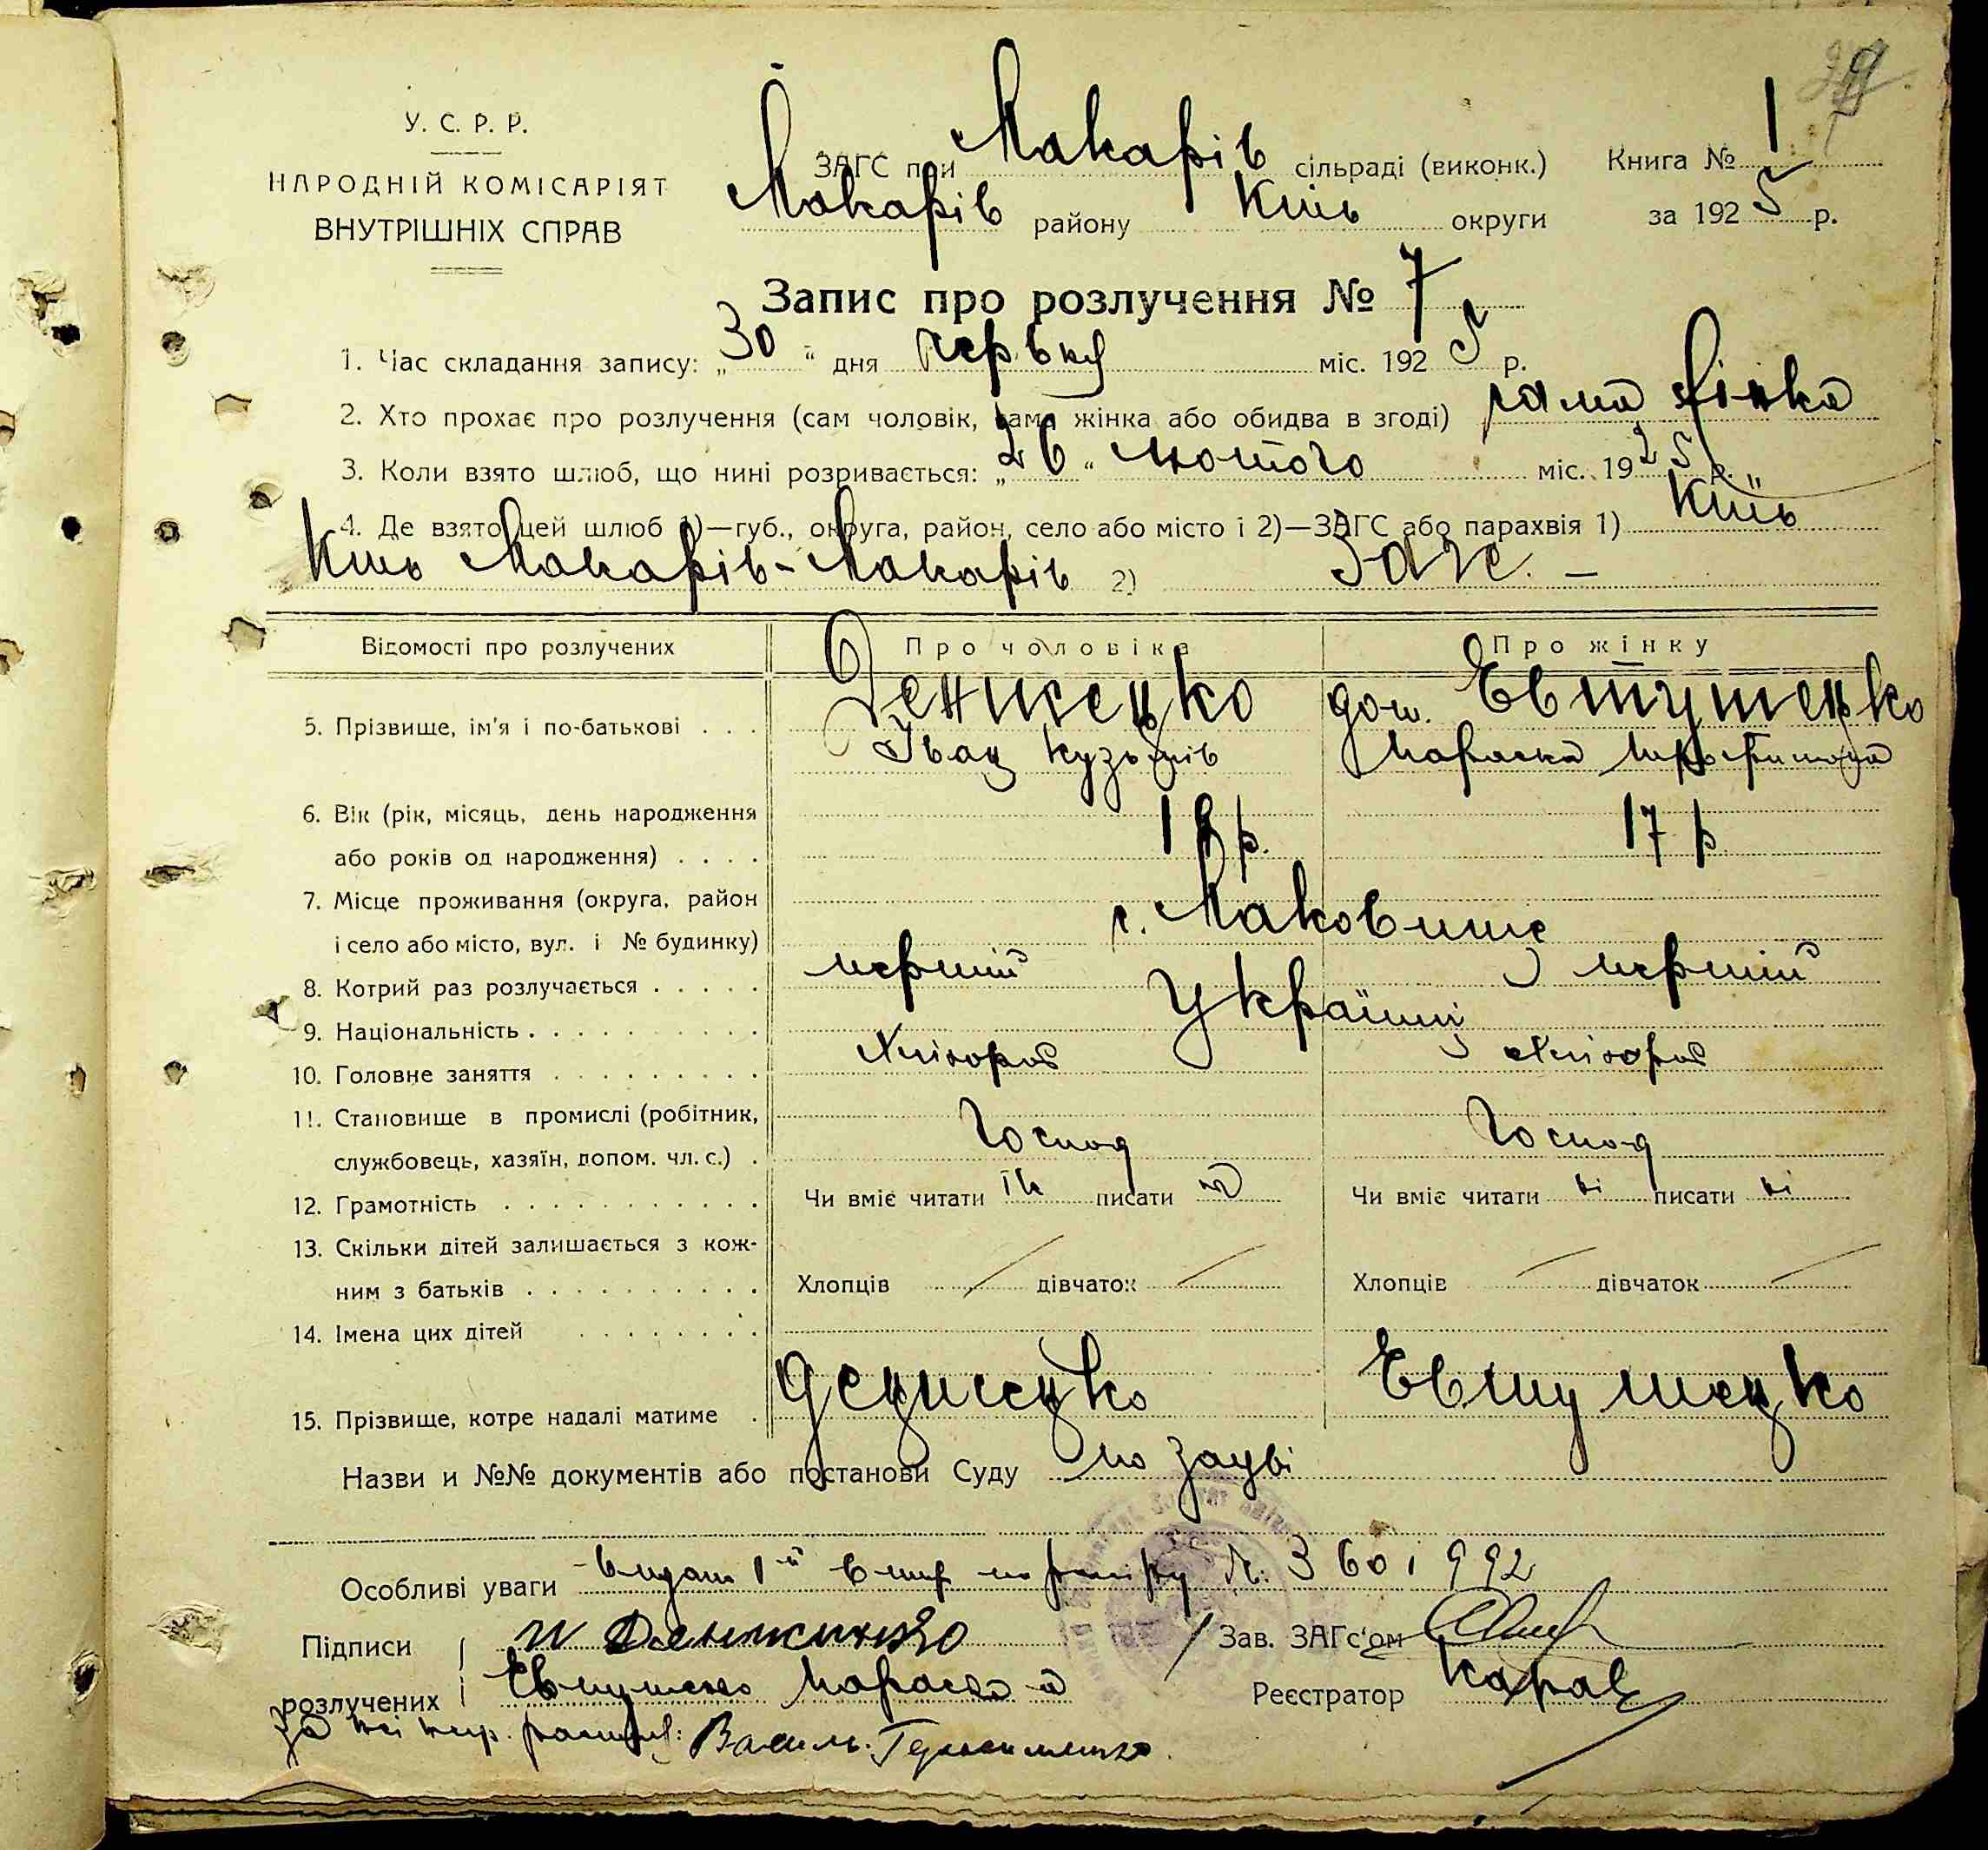 У. С. Р. Р.
НАРОДНІЙ КОМІСАРІЯТ
ВНУТРІШНІХ СПРАВ
ЗАГС при Макарів сільраді (виконк.)
Макарів району Київ округи
Книга № 1
за 1925 р.
Запис про розлучення № 7
1. Час складання запису: „30“ дня червня міс. 1925 р.
2. Хто прохає про розлучення (сам чоловік, сама жінка або обидва в згоді) сама жінка
3. Коли взято шлюб, що нині розривається: „26“ лютого міс. 1925 р.
4. Де взято цей шлюб 1)—губ., округа, район, село або місто і 2)—ЗАГС або парахвія 1) Київ
Київ Макарів-Макарів 2) Загс. —
Відомості про розлучених Про чоловіка Про жінку
5. Прізвище, ім'я і по-батькові . . . Денисенко дош. Евтушенко
Іван Кузьмів Параска
6. Вік (рік, місяць, день народження
або років од народження) . . . . 18 р. 17 р
7. Місце проживання (округа, район
і село або місто, вул. і № будинку) с. Маковище
8. Котрий раз розлучається . . . . . перший перший
9. Національність . . . . . . . . . . Українці
10. Головне заняття . . . . . . . . . Хлібороб Хлібороб
11. Становище в промислі (робітник,
службовець, хазяїн, допом. чл. с.) . Господ Господ
12. Грамотність . . . . . . . . . . . Чи вміє читати писати Чи вміє читати ні писати ні
13. Скільки дітей залишається з кож-
ним з батьків . . . . . . . . . . Хлопців / дівчаток / Хлопців / дівчаток /
14. Імена цих дітей . . . . . . . .
15. Прізвище, котре надалі матиме . Денисенко Евтушенко
Назви и №№ документів або постанови Суду по заяві
Особливі уваги видан 1й № 3601992
Підписи розлучених
И Денисенко
Евтушенко Параска а
за неї
Зав. ЗАГс'ом
Реєстратор